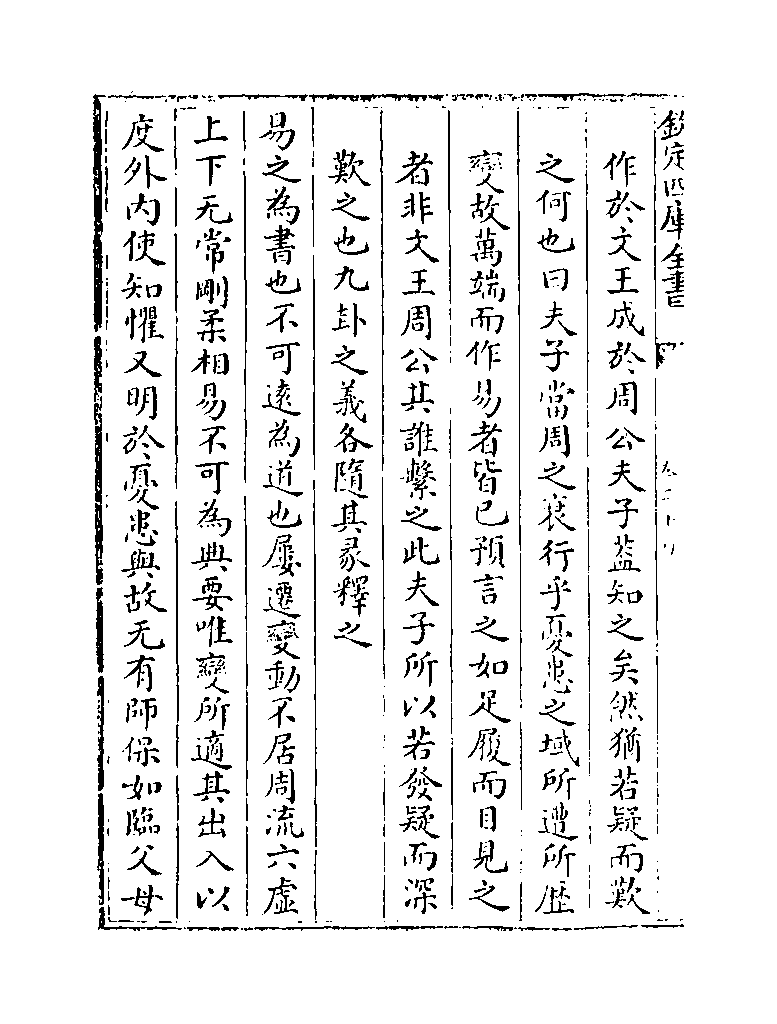 欽定四庫全書
作於文王成於周公夫子葢知之矣然猶若疑而歎
之何也曰夫子當周之衰行乎憂患之域所遭所歴
變故萬端而作易者皆已預言之如足履而目見之
者非文王周公其誰繫之此夫子所以若發疑而深
歎之也九卦之義各隨其彖釋之
易之為書也不可逺為道也屢遷變動不居周流六虛
上下无常剛柔相易不可為典要唯變所適其出入以
度外内使知懼又明於憂患與故无有師保如臨父母